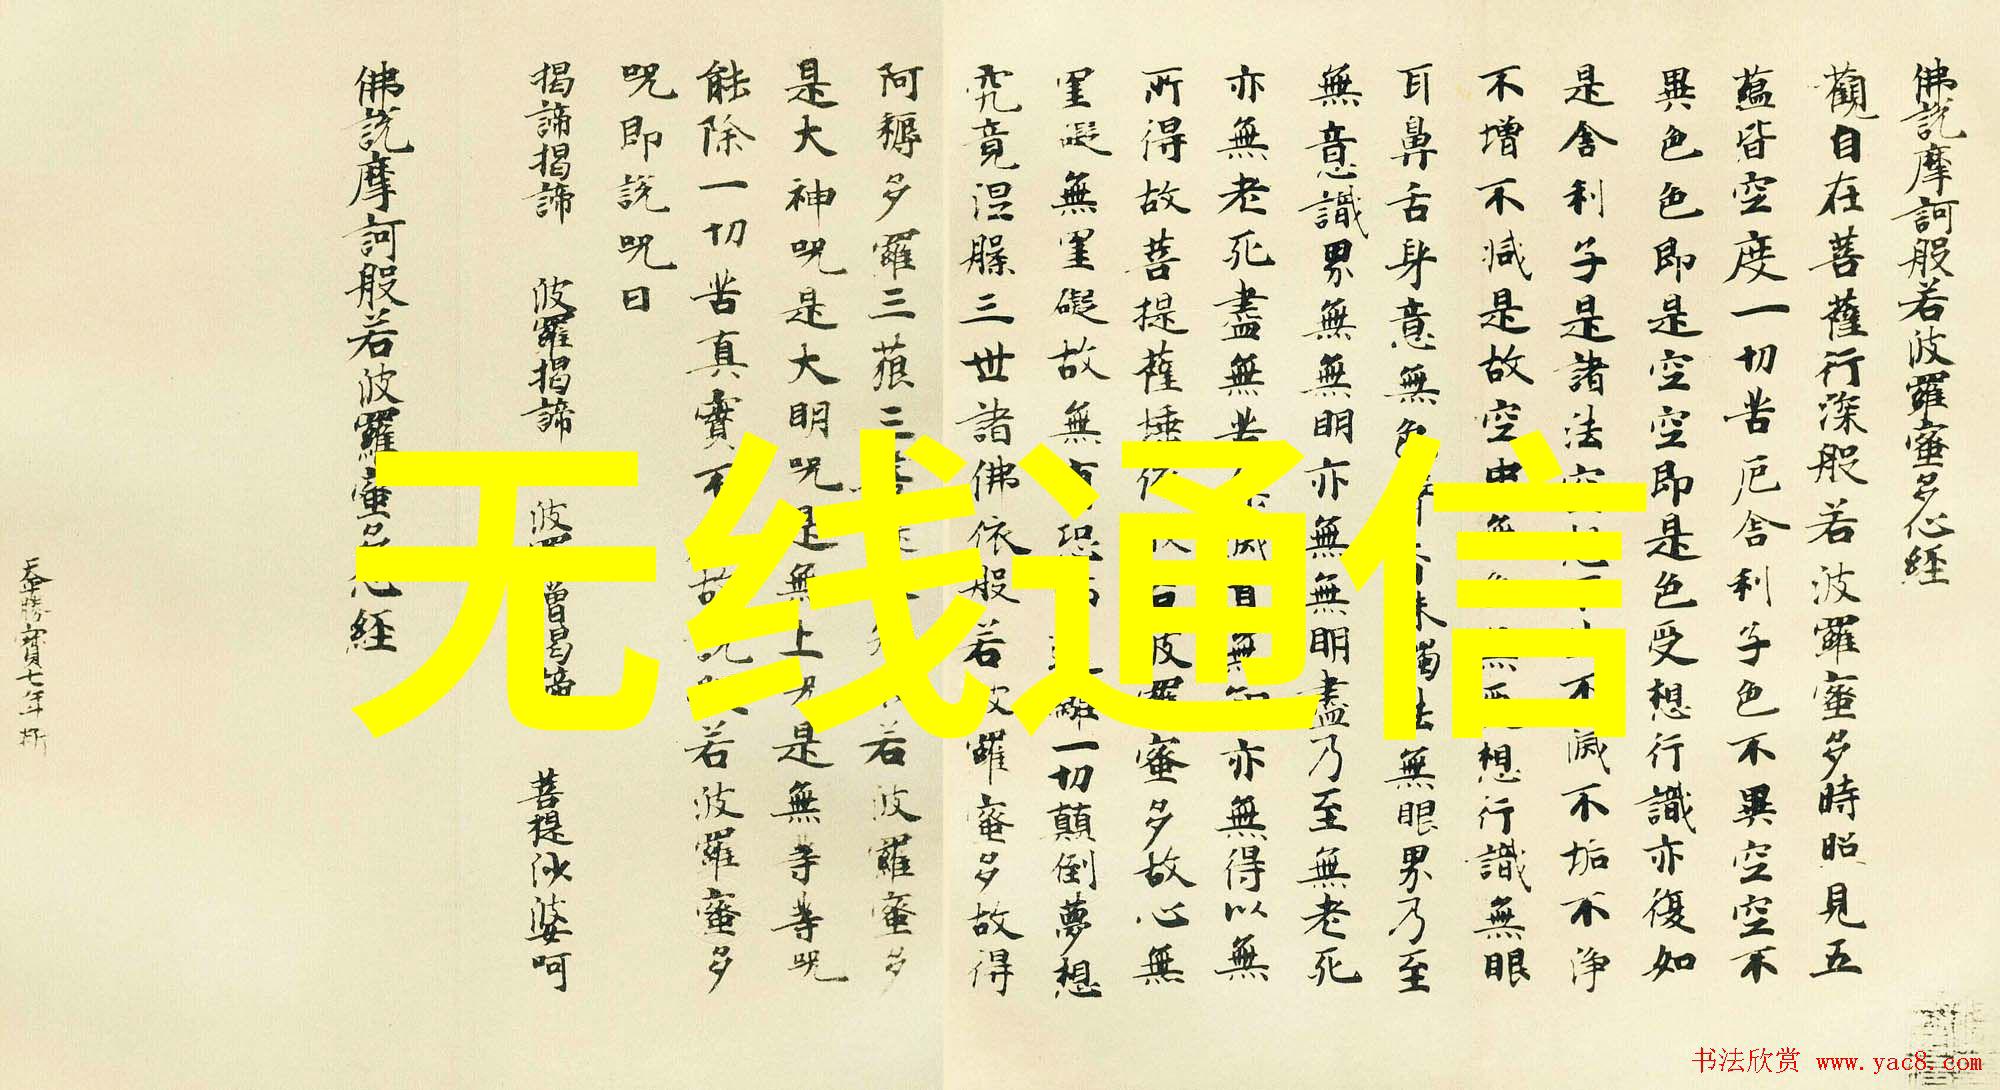 佛說摩訶般若波羅蜜多心経
觀自在菩薩行深般若波羅蜜多時照見五
蘊皆空度一切苦厄舎利子色不異空空不
異色色即是空空即是色受想行識亦復如
是舎利子是諸法空
不滅不垢不浄
不增不減是故空中無
想行識無眼
耳鼻舌身意無色
觸法無眼界乃至
無意識界無無明亦無無明盡乃至無老死
亦無老死盡無苦
亦無得以無
所得故菩提薩埵依
波羅蜜多故心無
罣礙無罣礙故無有恐
一切顛倒夢想
究竟涅膝三世諸佛依般若波羅蜜多故得
阿耨多羅三藐三菩
若波羅蜜多
是大神呪是大明呪是無上呪是無等等呪
能除一切苦真實不
故說般若波羅蜜多
呪即説呪曰
揭諦揭諦 波羅揭諦 波羅僧揭諦 菩提沙婆呵
佛說摩訶般若波羅蜜多心経
天平勝寳七年
无线通信
书法欣赏 www.yac8.com